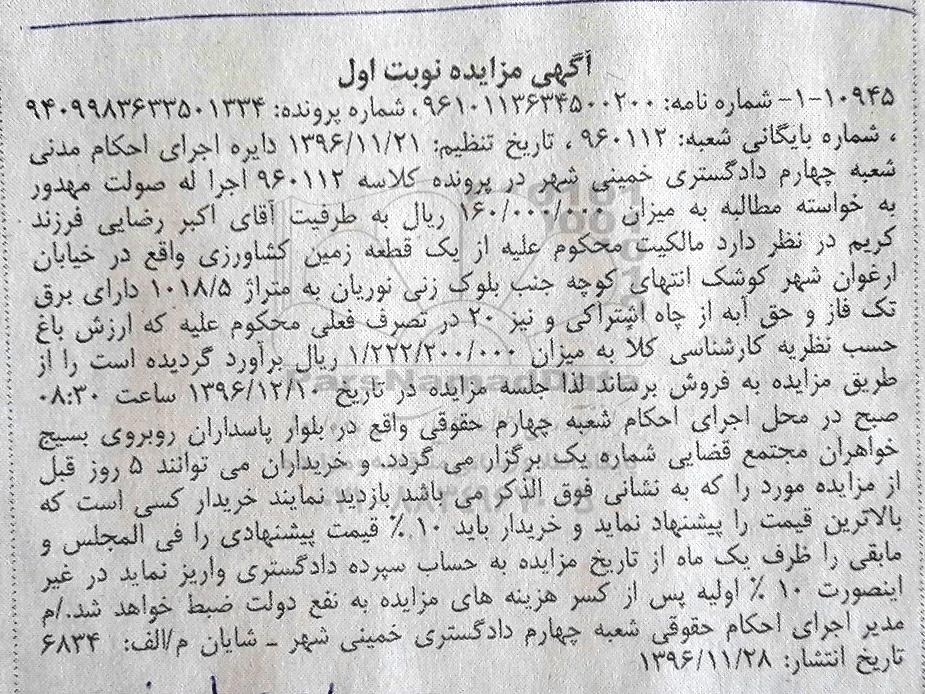 آگهی مزایده نوبت اول
۱۰۹۴۵-۱- شماره نامه: ۹۶۱۰۱۱۳۶۳۴۵۰۰۲۰۰، شماره پرونده: ۹۴۰۹۹۸۳۶۳۳۵۰۱۳۳۴
، شماره بایگانی شعبه: ۹۶۰۱۱۲ ، تاریخ تنظیم: ۱۳۹۶/۱۱/۲۱ دایره اجرای احکام مدنی
شعبه چهارم دادگستری خمینی شهر در پرونده کلاسه ۹۶۰۱۱۲ اجرا له صولت مهدور
به خواسته مطالبه به میزان ۱۶۰/۰۰۰/۰۰۰ ریال به طرفیت آقای اکبر رضایی فرزند
کریم در نظر دارد مالکیت محکوم علیه از یک قطعه زمین کشاورزی واقع در خیابان
ارغوان شهر کوشک انتهای کوچه جنب بلوک زنی نوریان به متراژ ۱۰۱۸/۵ دارای برق
تک فاز و حق آبه از چاه اشتراکی و نیز ۲۰ در تصرف فعلی محکوم علیه که ارزش باغ
حسب نظریه کارشناسی کلا به میزان ۱/۲۲۲/۲۰۰/۰۰۰ ریال برآورد گردیده است را از
طریق مزایده به فروش برساند لذا جلسه مزایده در تاریخ ۱۳۹۶/۱۲/۱۰ ساعت ۰۸:۳۰
صبح در محل اجرای احکام شعبه چهارم حقوقی واقع در بلوار پاسداران روبروی بسیج
خواهران مجتمع قضایی شماره یک برگزار می گردد. و خریداران می توانند ۵ روز قبل
از مزایده مورد را که به نشانی فوق الذکر می باشد بازدید نمایند خریدار کسی است که
بالاترین قیمت را پیشنهاد نماید و خریدار باید ۱۰ ٪ قیمت پیشنهادی را فی المجلس و
مابقی را ظرف یک ماه از تاریخ مزایده به حساب سپرده دادگستری واریز نماید در غیر
اینصورت ۱۰ ٪ اولیه پس از کسر هزینه های مزایده به نفع دولت ضبط خواهد شد./م
مدیر اجرای احکام حقوقی شعبه چهارم دادگستری خمینی شهر ـ شایان م/الف: ۶۸۳۴
تاریخ انتشار: ۱۳۹۶/۱۱/۲۸